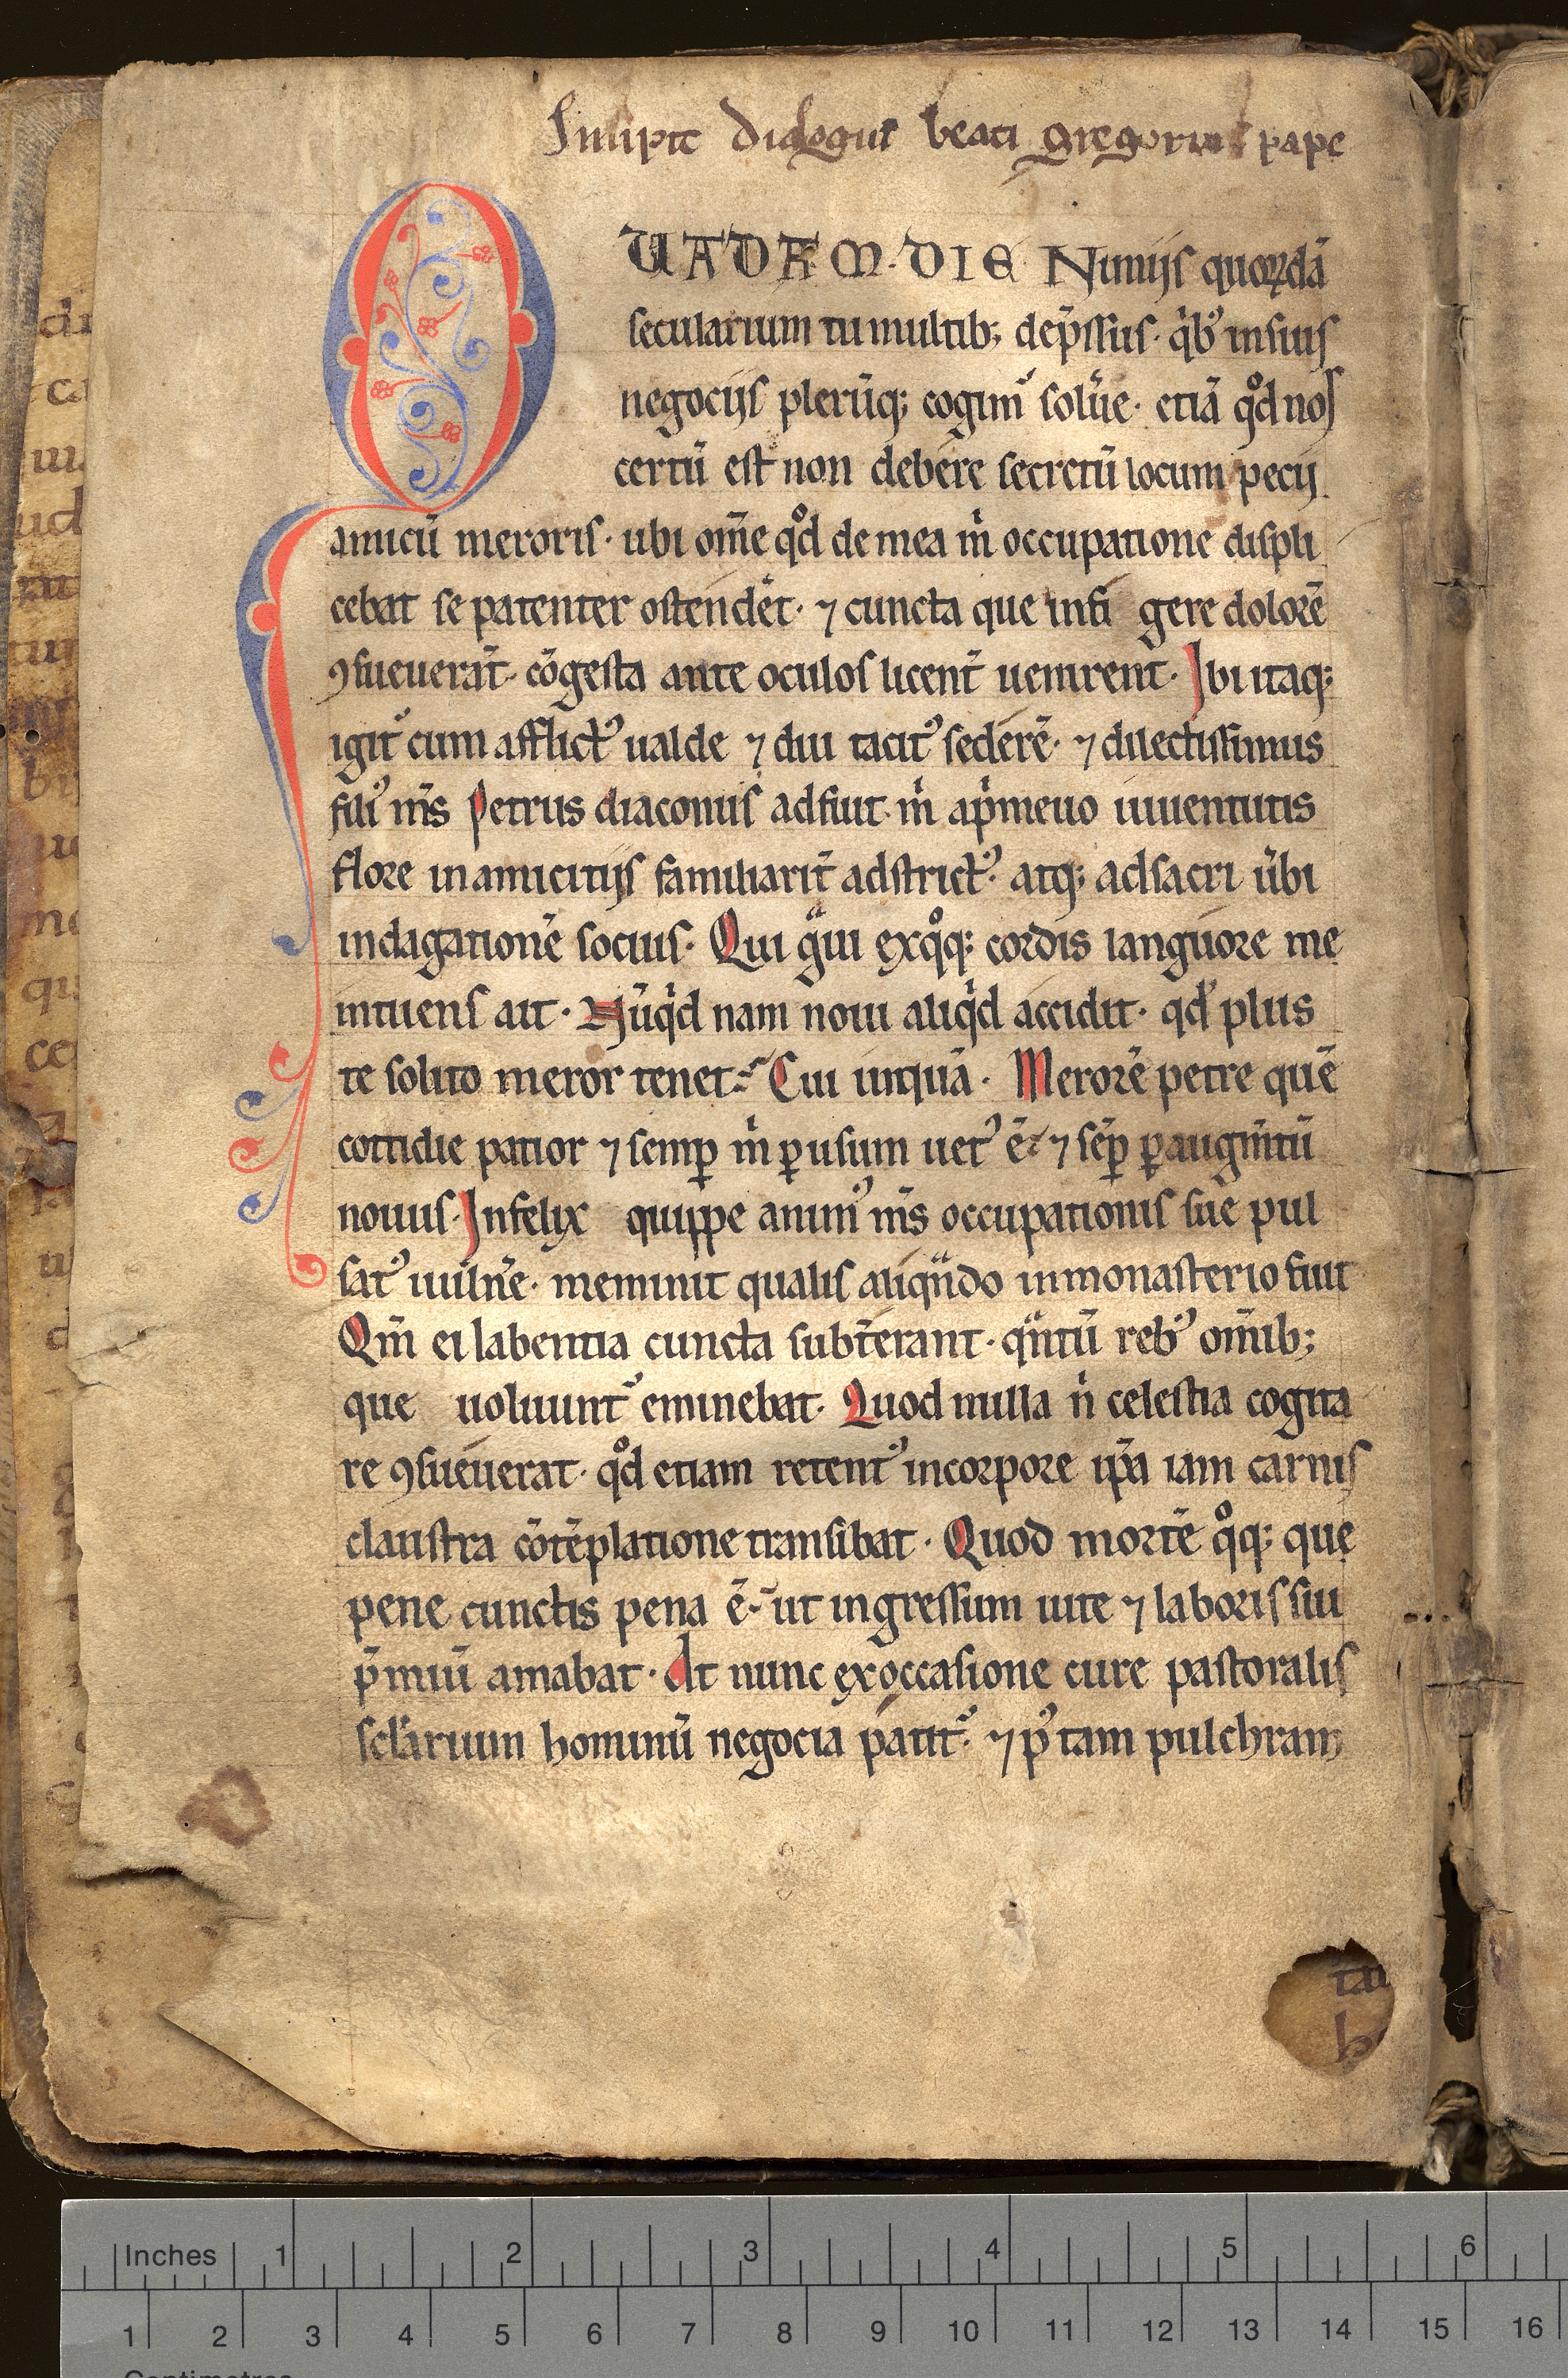 Incipit dialogus beati gregorius pape
QUADAM·DIE Nimijs quoꝝdā
secularium tumultib; dep̄ssus· q̇bꝰ in suis
negocijs plerūq; cogimᷣ solũe· etiā qͦd nos
certū est non debere secretū locum pecij
amicū meroris· ubi om̄e qͦd de mea m̍ occupatione displi
cebat se patenter ostendẽt· ⁊ cuncta que infi gere dolorē
ꝯsueuerāt· cōgesta ante oculos licent̄ uenirent· Ibi itaq;
igitᷣ cum afflictꝰ ualde ⁊ diu tacitꝰ sederē· ⁊ dilectissimus
filiꝰ m̄s Petrus diaconus adfuit· m̍ ap̍meuo iuuentutis
flore in amicitijs familiarit̄ adstrictꝰ· atq; ad sacri ũbi
indagationē socius· Qui gᷓui exqͦq; cordis languore me
intuens ait· Nūq̍d nam noui aliq̍d accidit· qd̓ plus
te solito meror tenet· Cui inquā· Merorē petre quē
cottidie patior ⁊ semꝑ m̍ ꝑ usum uetꝰ ē· ⁊ sēꝑ ꝑ augm̄tū
nouus· Infelix quippe animꝰ m̄s occupationis sue pul
satꝰ uuln̄e· meminit qualis aliqᷓndo in monasterio fuit
Qm̄ ei labentia cuncta subt̄erant· qᷓntū rebꝰ om̄ib;
que uoluuntᷣ eminebat· Quod nulla n̍ celestia cogita
re ꝯsueuerat· qͦd etiam retentꝰ in corpore ip̄a iam carnis
claustra cōtēplatione transibat· Quod mortē qͦq; que
pene cunctis pena ē· ut ingressum uite ⁊ laboris sui
p̄miū amabat· At nunc ex occasione cure pastoralis
scl̓arium hominū negocia patitᷣ· ⁊ pꝰ tam pulchram